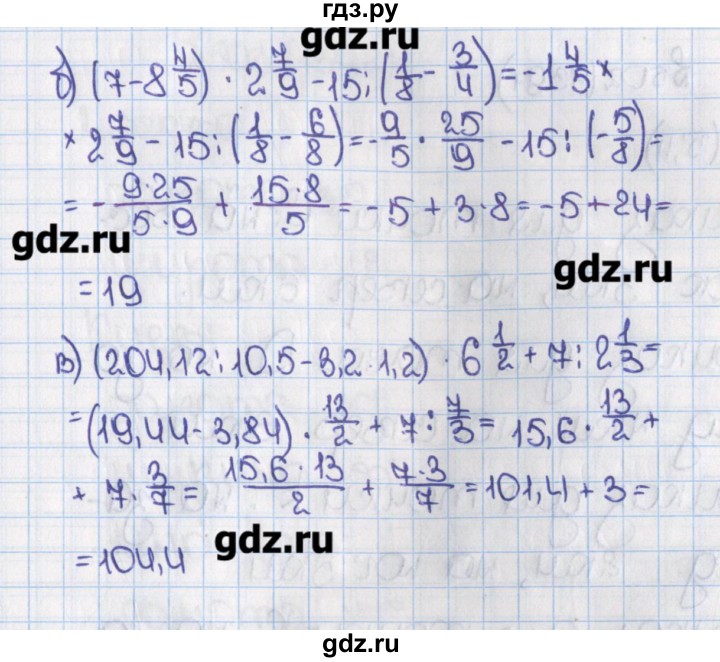 гдз.ру
gdz.ru
б) (7-8 4/5) · 2 7/9 - 15 : (1/8 - 3/4) = -1 4/5 ×
× 2 7/9 - 15 : (1/8 - 6/8) = -9/5 · 25/9 - 15 : (-5/8) =
= - 9·25/5·9 + 15·8/5 = -5 + 3·8 = -5 + 24 =
gdz.ru
gdz.ru
= 19
в) (204,12 : 10,5 - 3,2 · 1,2) · 6 1/2 + 7 : 2 1/3 =
= (19,44 - 3,84) · 13/2 + 7 : 7/3 = 15,6 · 13/2 +
+ 7 · 3/7 = 15,6·13/2 + 7·3/7 = 101,4 + 3 =
gdz.ru
= 104,4
gdz.ru